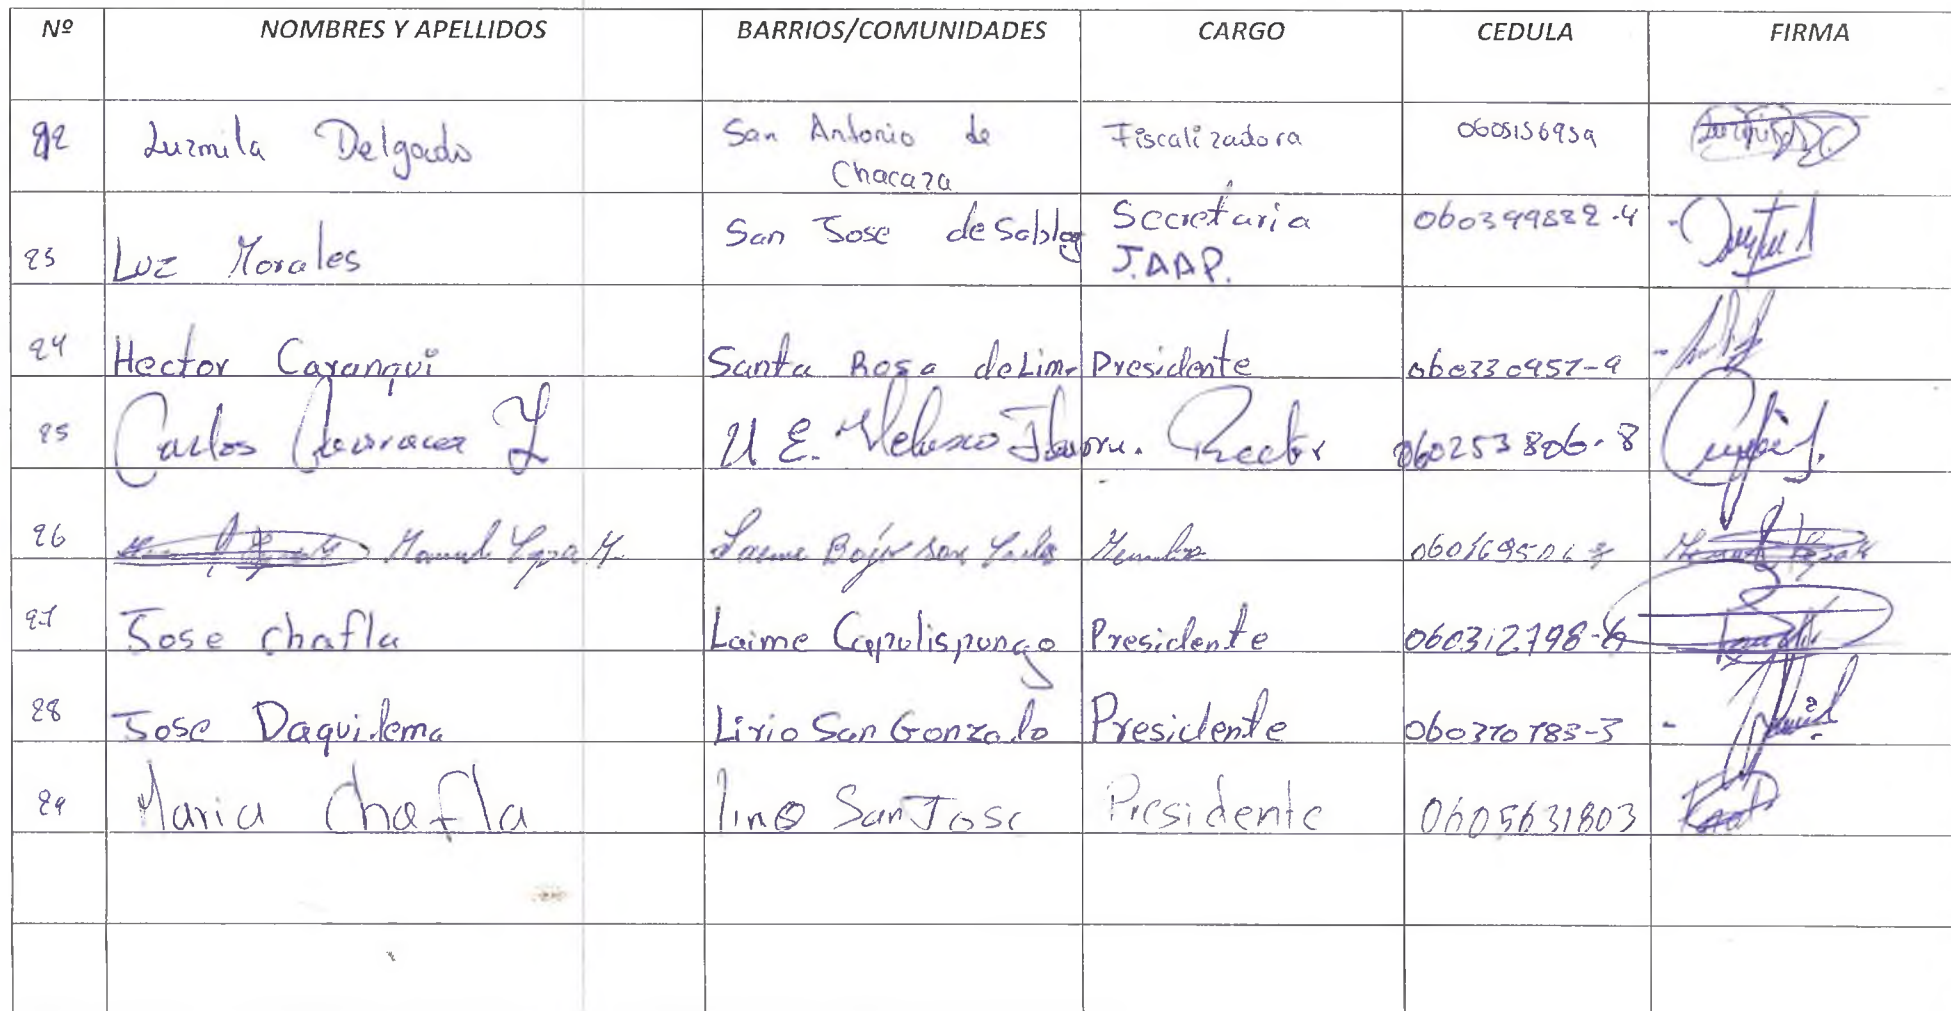 Nº NOMBRES Y APELLIDOS BARRIOS/COMUNIDADES CARGO CEDULA FIRMA
22 Luzmila Delgado San Antonio de Chacaza Fiscalizadora 0605156959
23 Luz Morales San Jose de Sablog Secretaria J.A.A.P. 060399882-4
24 Hector Caranqui Santa Rosa de Lim. Presidente 060330957-9
25 Carlos U.E. Velasco Rector 060253806-8
26 Manuel
27 Jose Chafla Laime Capulispungo Presidente
28 Jose Daquilema Lirio San Gonzalo Presidente 060370783-3
29 Maria Chafla San Jose Presidente 0605631803